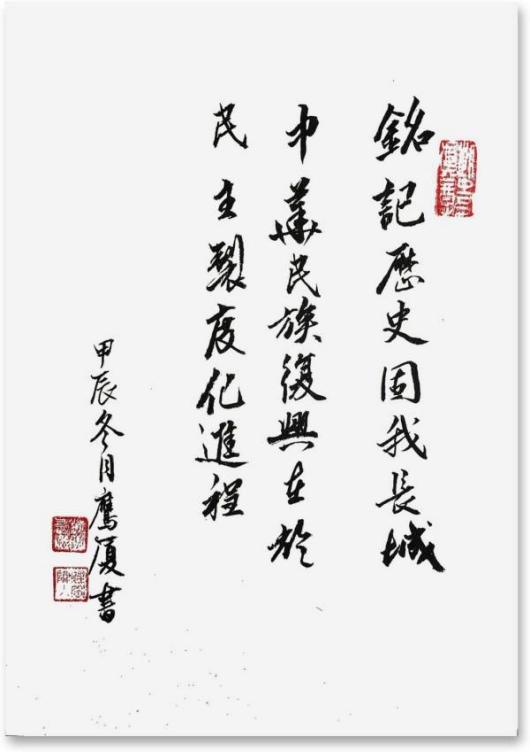 銘記歷史固我長城
中華民族復興在於
民主製度化進程
甲辰冬月鷹厦書